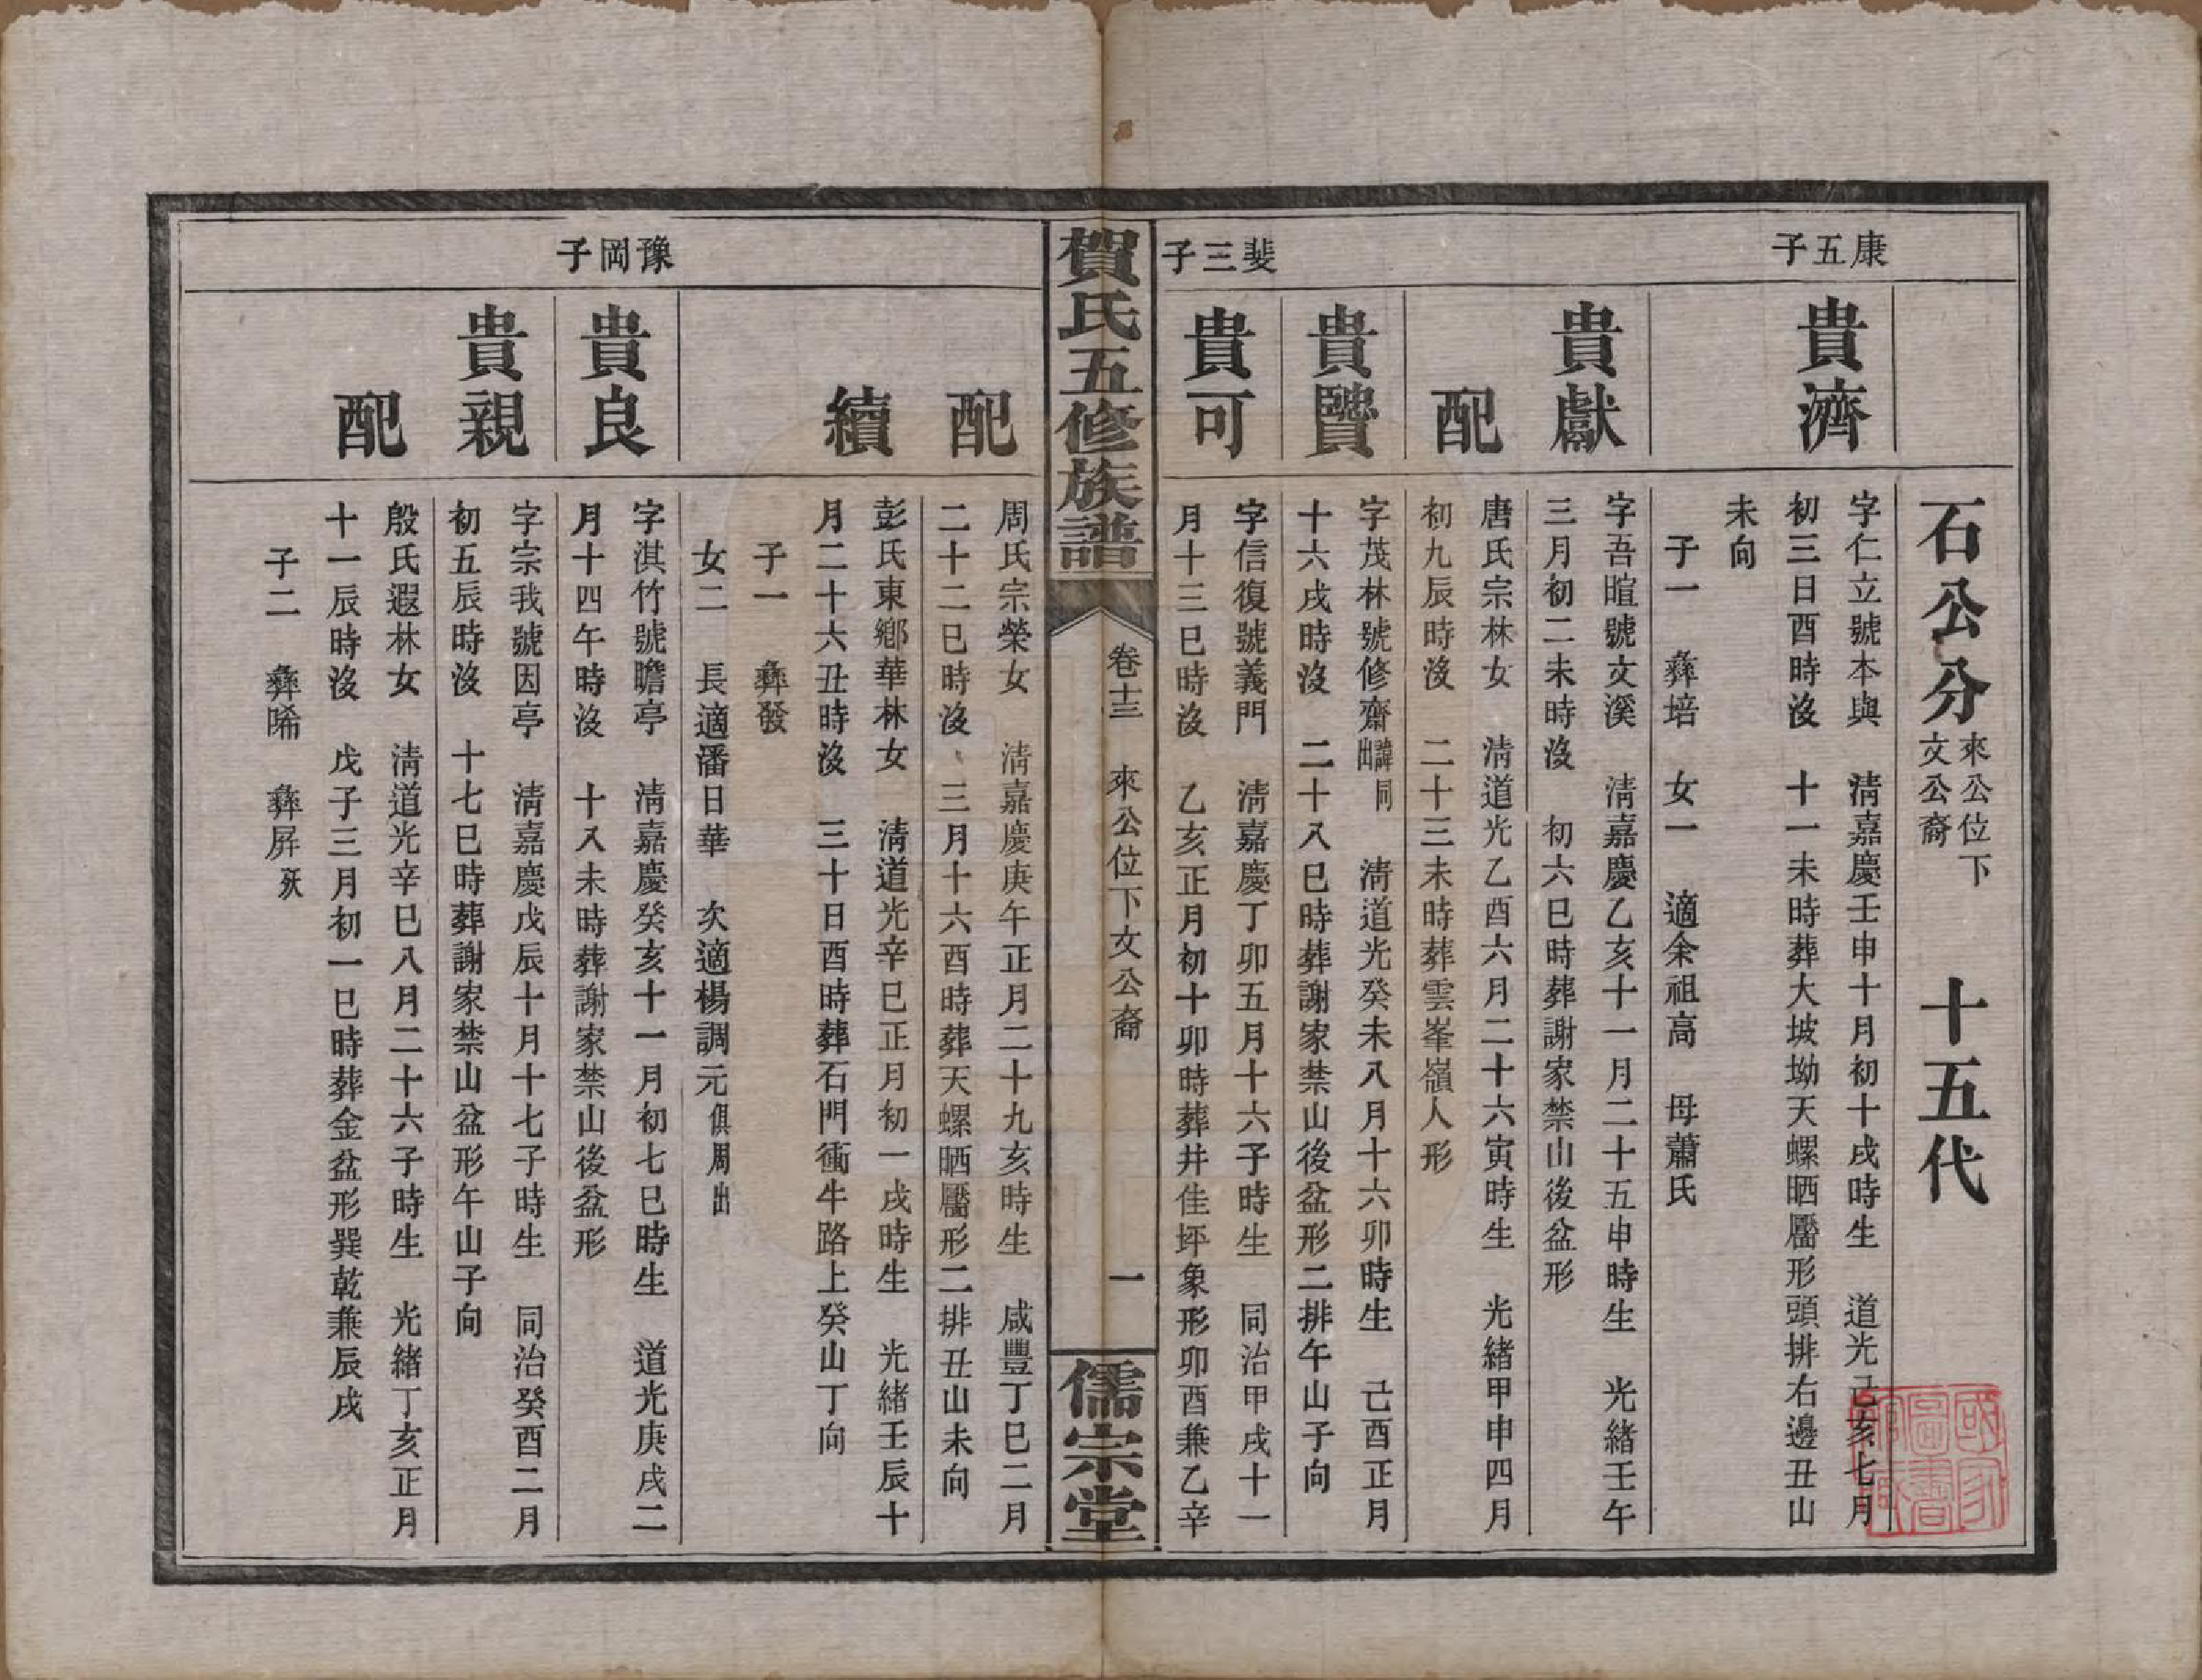 石公分 來公位下 文公裔 十五代
康五子
貴濟
字仁立號本與 清嘉慶壬申十月初十戌時生 道光己亥七月
初三日酉時沒 十一未時葬大坡坳天螺晒靨形頭排右邊丑山
未向
子一 彝培 女一 適余祖高 母蕭氏
貴獻
字吾暄號文溪 清嘉慶乙亥十一月二十五申時生 光緒壬午
三月初二未時沒 初六巳時葬謝家禁山後盆形
配
唐氏宗林女 清道光乙酉六月二十六寅時生 光緒甲申四月
初九辰時沒 二十三未時葬雲峯嶺人形
貴贒
字茂林號修齋出諱同 清道光癸未八月十六卯時生 己酉正月
十六戌時沒 二十八巳時葬謝家禁山後盆形二排午山子向
斐三子
貴可
字信復號義門 清嘉慶丁卯五月十六子時生 同治甲戌十一
月十三巳時沒 乙亥正月初十卯時葬井佳坪象形卯酉兼乙辛
賀氏五修族譜
卷十三 來公位下文公裔
一
儒宗堂
配
周氏宗榮女 清嘉慶庚午正月二十九亥時生 咸豐丁巳二月
二十二巳時沒 三月十六酉時葬天螺晒靨形二排丑山未向
續
彭氏東鄉華林女 清道光辛巳正月初一戌時生 光緒壬辰十
月二十六丑時沒 三十日酉時葬石門衝牛路上癸山丁向
子一 彝發
女二 長適潘日華 次適楊調元俱周出
豫岡子
貴良
字淇竹號瞻亭 清嘉慶癸亥十一月初七巳時生 道光庚戌二
月十四午時沒 十八未時葬謝家禁山後盆形
貴親
字宗我號因亭 清嘉慶戊辰十月十七子時生 同治癸酉二月
初五辰時沒 十七巳時葬謝家禁山盆形午山子向
配
殷氏遐林女 清道光辛巳八月二十六子時生 光緒丁亥正月
十一辰時沒 戊子三月初一巳時葬金盆形巽乾兼辰戌
子二 彝晞 彝屏殀
國家圖書館藏